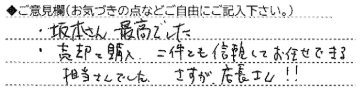 ◆ご意見欄(お気づきの点などご自由にご記入下さい。)
・坂本さん 最高でした
・売却と購入 二件とも信頼してお任せできる
担当さんでした さすが、店長さん!!